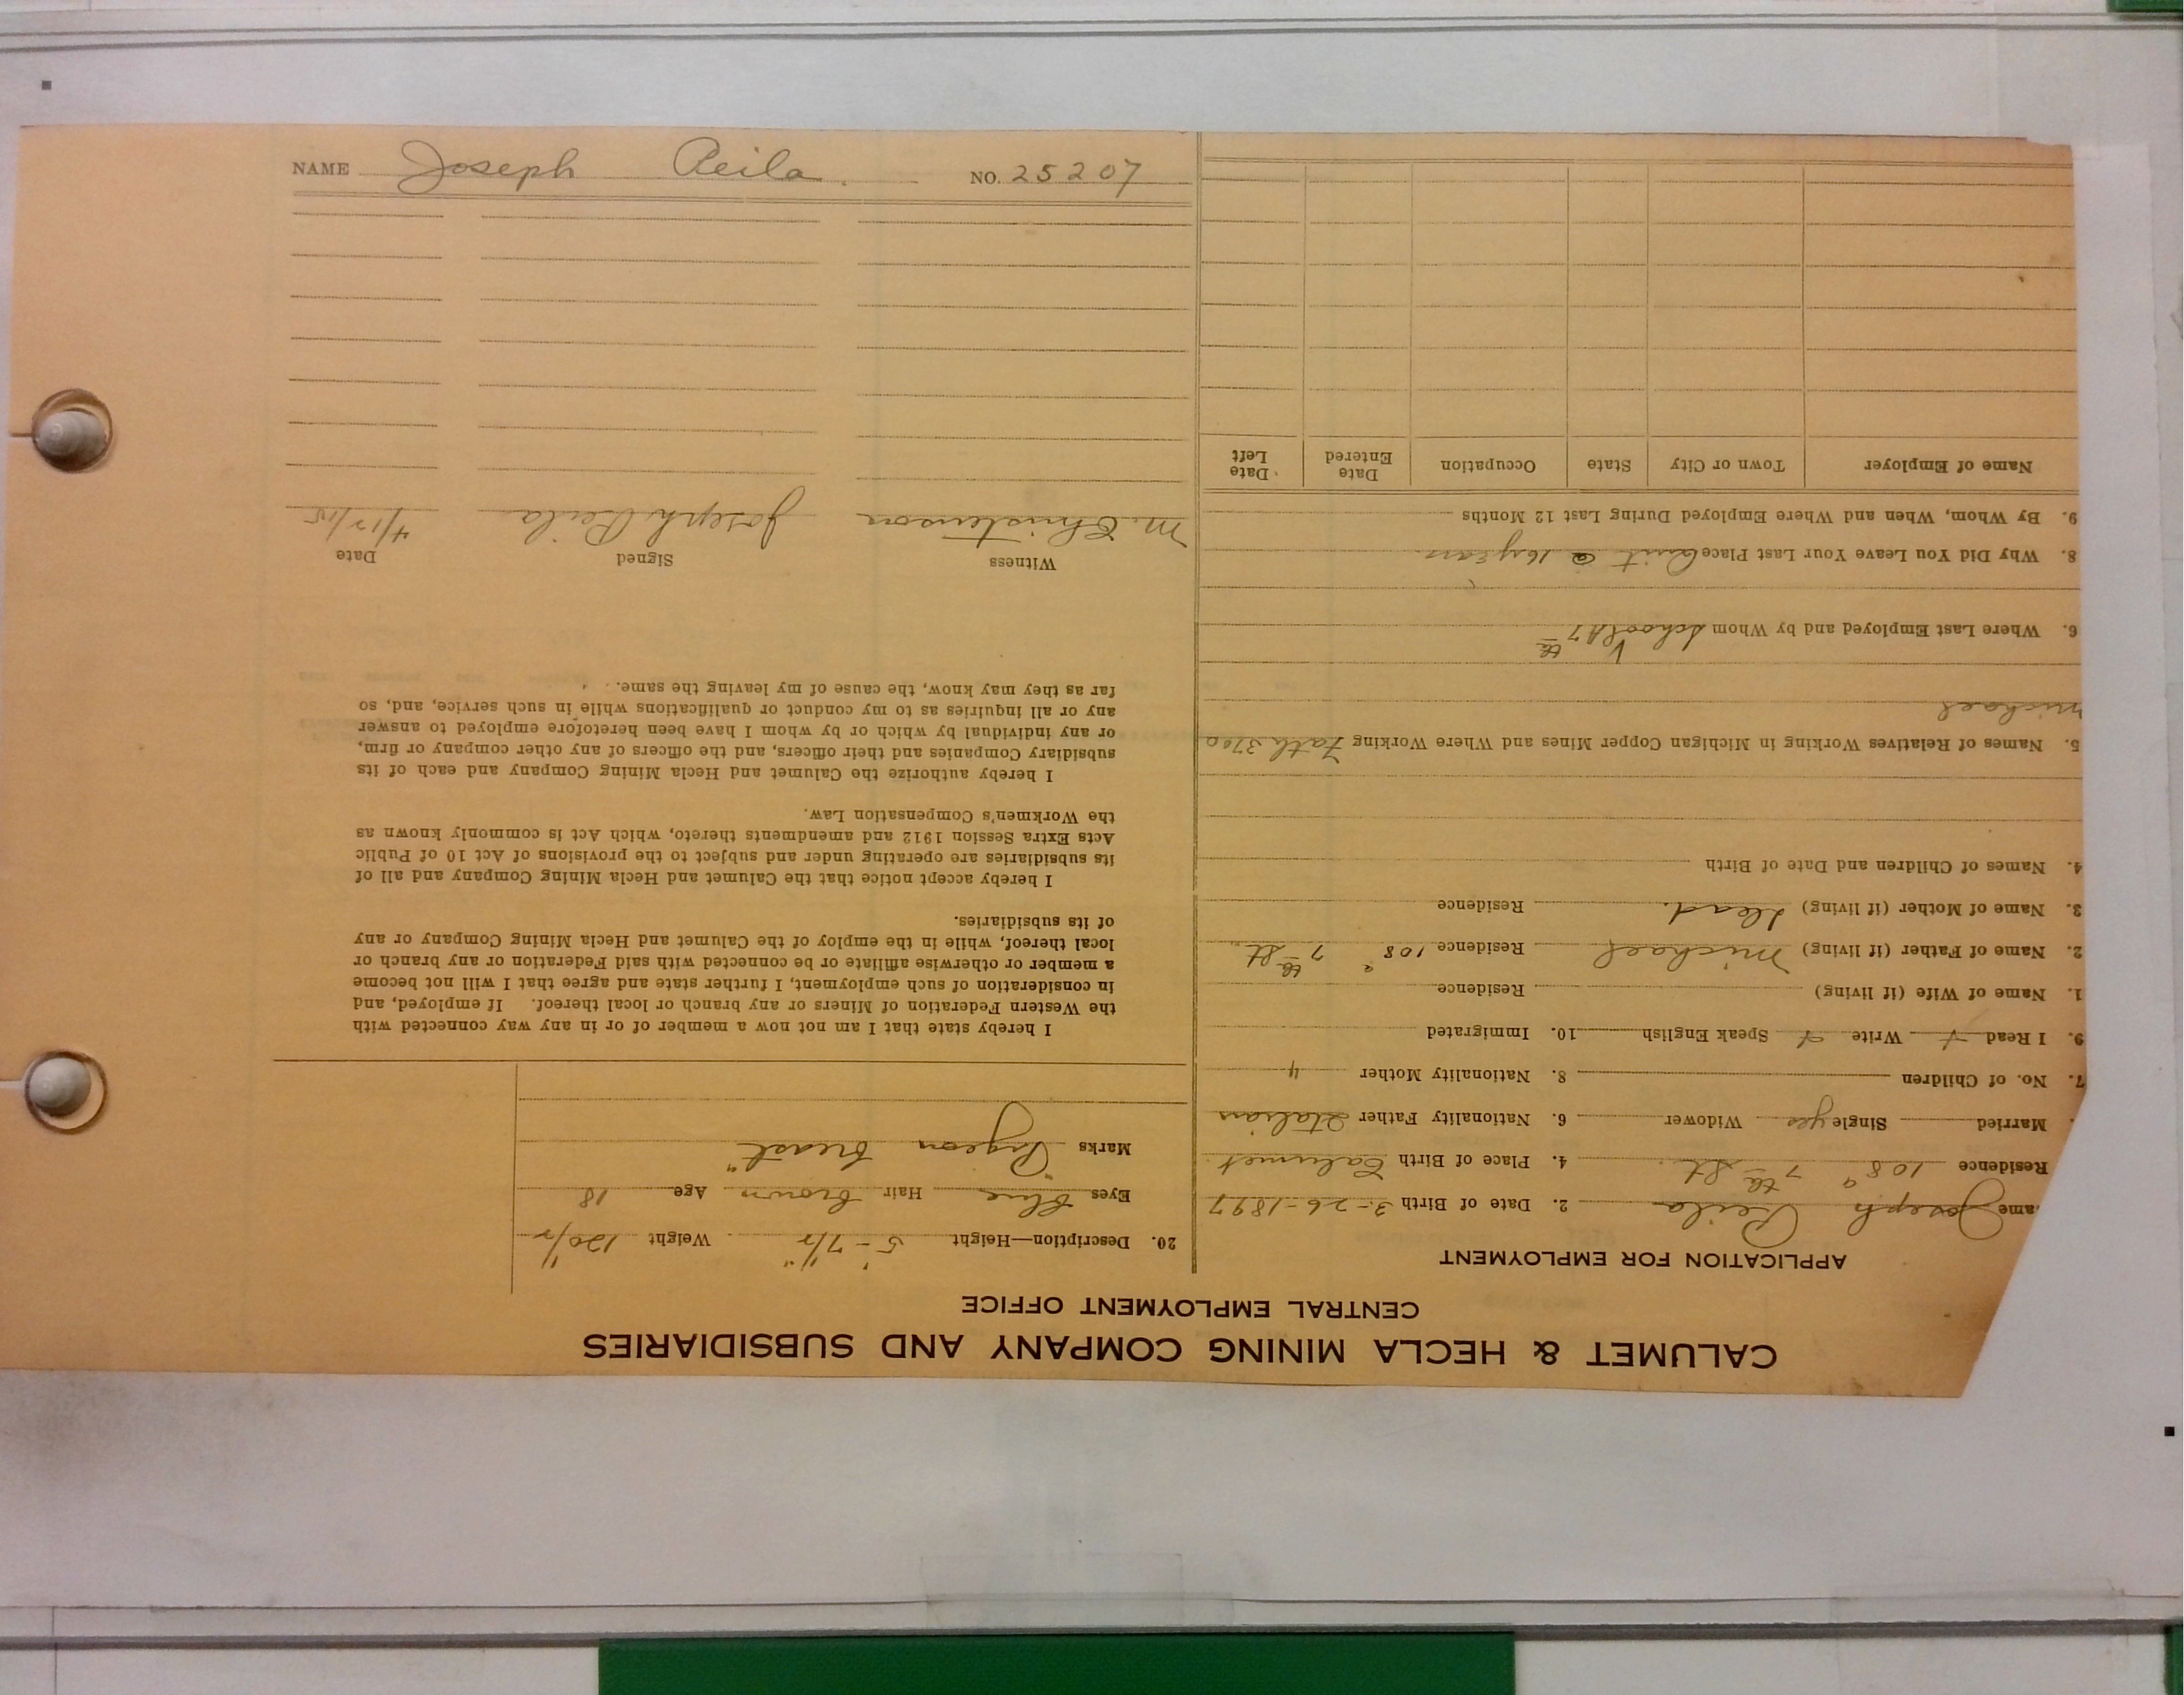 CALUMET & HECLA MINING COMPANY AND SUBSIDIARIES
CENTRAL EMPLOYMENT OFFICE
APPLICATION FOR EMPLOYMENT
ame Joseph Peila 2. Date of Birth 3-26-1897
Residence 108 7th St. 4. Place of Birth Calumet
Married Single yes Widower 6. Nationality Father Italian
7. No. of Children 8. Nationality Mother "
9. I Read Write Speak English 10. Immigrated
1. Name of Wife (if living) Residence
2. Name of Father (if living) Michael Residence 108 7th St.
3. Name of Mother (if living) Dead. Residence
4. Names of Children and Date of Birth
5. Names of Relatives Working in Michigan Copper Mines and Where Working Fath 3700
Michael
6. Where Last Employed and by Whom School 7th
8. Why Did You Leave Your Last Place Quit @ 16 years
9. By Whom, When and Where Employed During Last 12 Months
Name of Employer Town or City State Occupation Date Entered Date Left
20. Description—Height 5'-7 1/2" Weight 120 1/2
Eyes blue Hair brown Age 18
Marks "Pigeon breast"
I hereby state that I am not now a member of or in any way connected with
the Western Federation of Miners or any branch or local thereof. If employed, and
in consideration of such employment, I further state and agree that I will not become
a member or otherwise affiliate or be connected with said Federation or any branch or
local thereof, while in the employ of the Calumet and Hecla Mining Company or any
of its subsidiaries.
I hereby accept notice that the Calumet and Hecla Mining Company and all of
its subsidiaries are operating under and subject to the provisions of Act 10 of Public
Acts Extra Session 1912 and amendments thereto, which Act is commonly known as
the Workmen's Compensation Law.
I hereby authorize the Calumet and Hecla Mining Company and each of its
subsidiary Companies and their officers, and the officers of any other company or firm,
or any individual by which or by whom I have been heretofore employed to answer
any or all inquiries as to my conduct or qualifications while in such service, and, so
far as they may know, the cause of my leaving the same.
Witness Signed Date
M. Christenson Joseph Peila 4/17/15
NAME Joseph Peila. NO. 25207